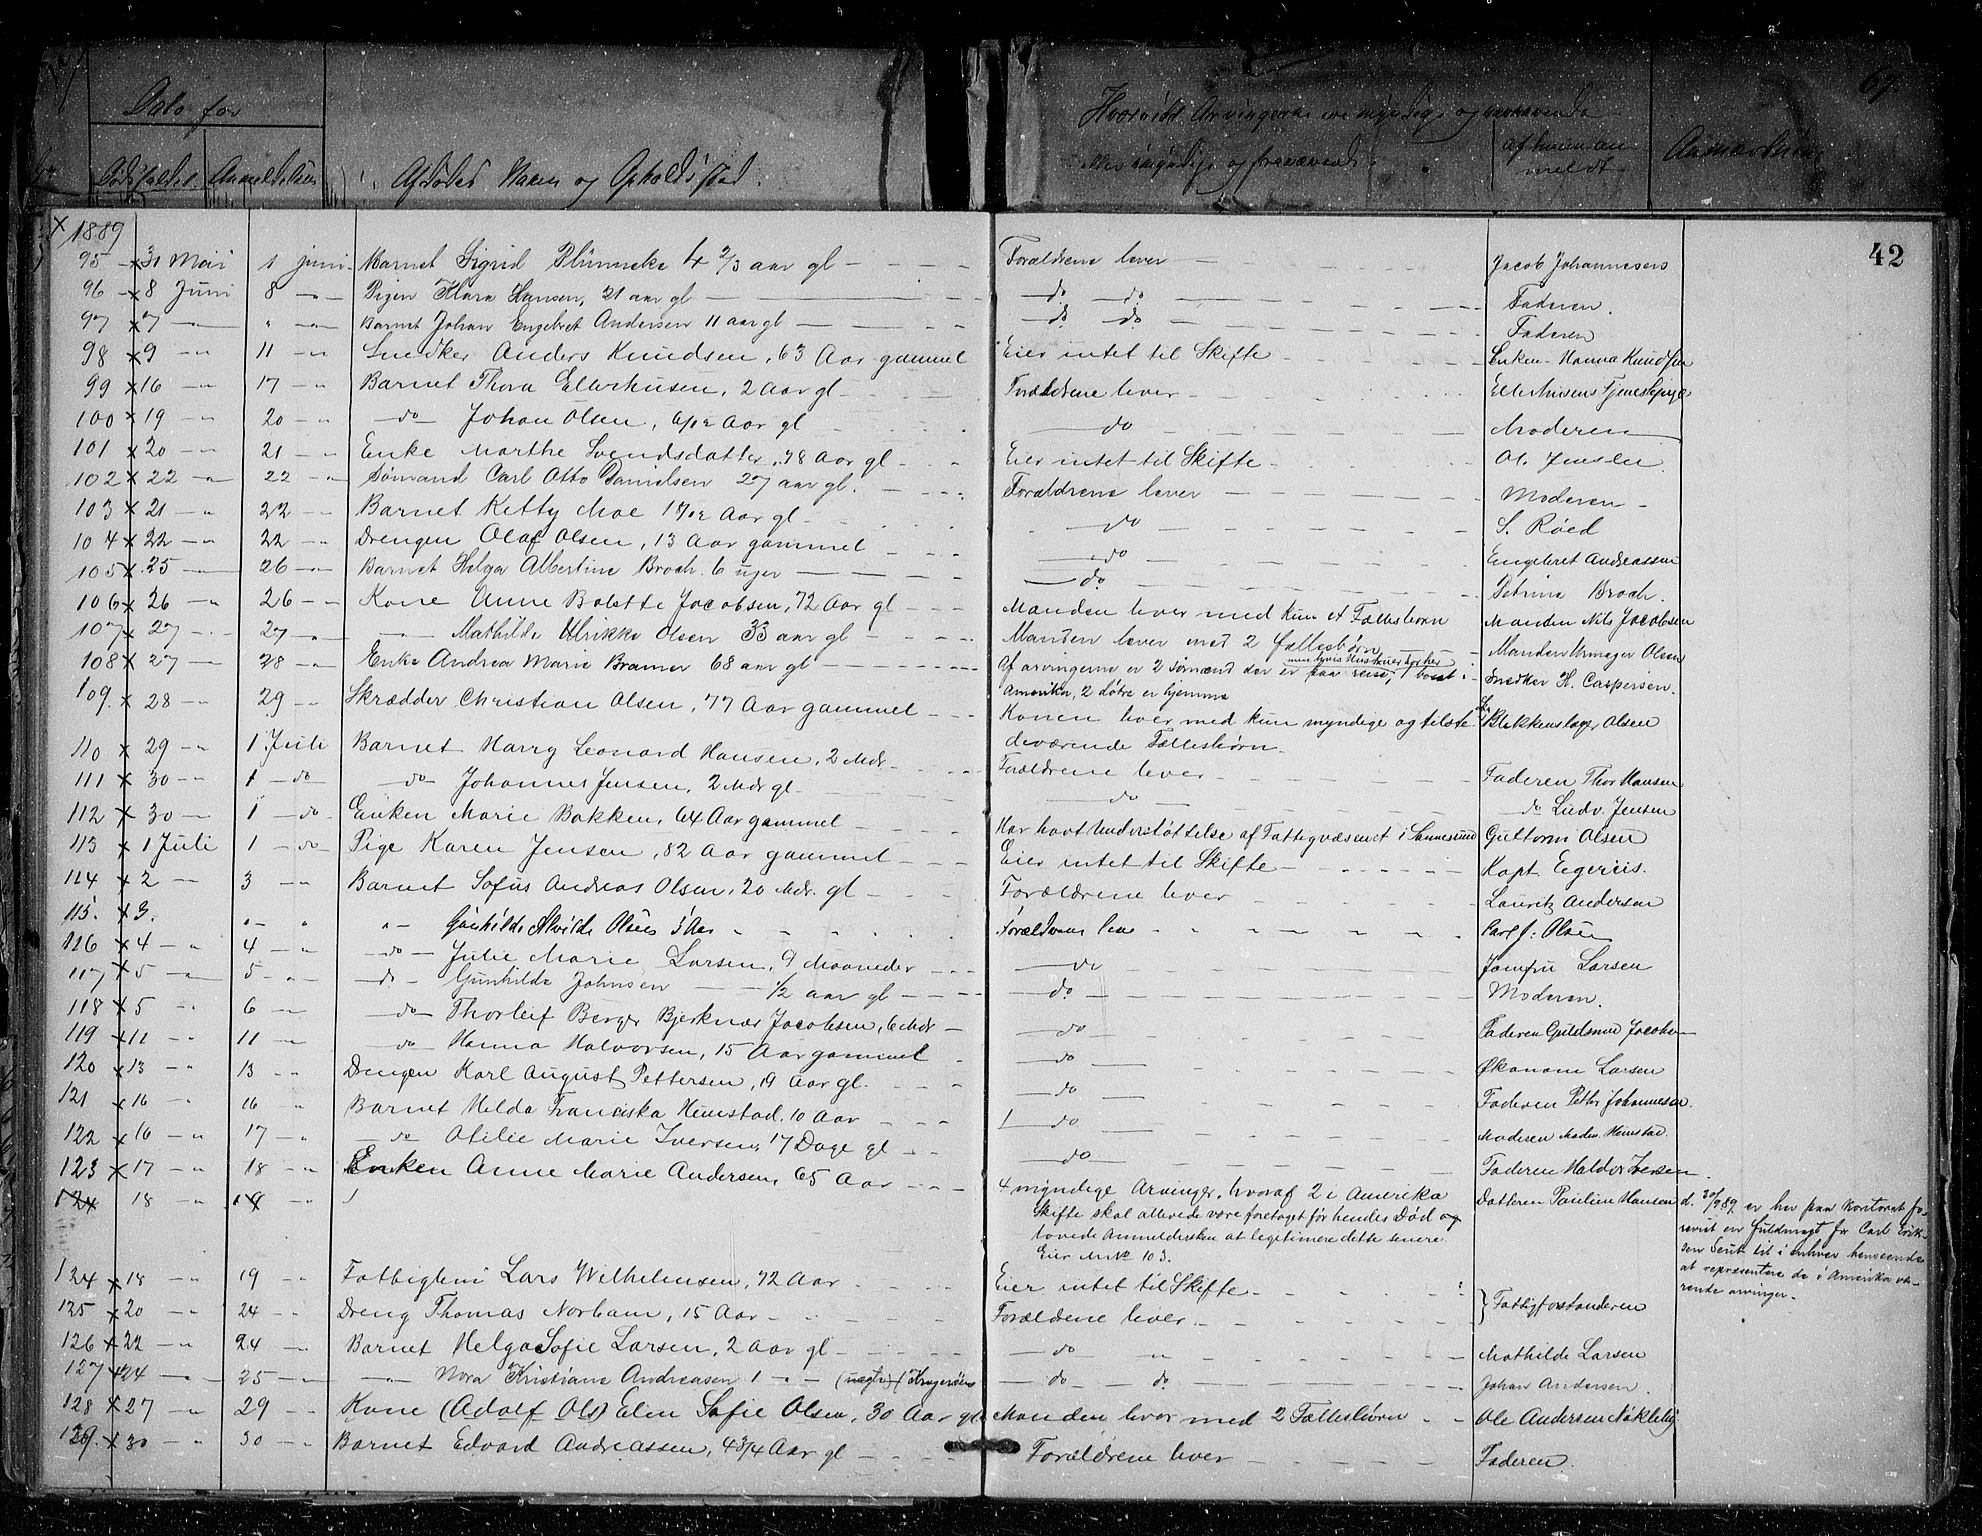 Dato for
Dødsfaldet Anmeldelsen Afdødes Navn og Opholdssted. Hvorvidt Arvingerne ere myndige og nærværende eller umyndige og fraværende af hvem anmeldt Anmærkning
42
1889
95 31 Mai 1 juni Barnet Sigrid Plünneke 4 2/3 aar gl Forældrene lever Jacob Johannesens
96 8 Juni 8 Pigen Klara Hansen, 21 aar gl do do Faderen.
97 7 " Barnet Johan Engebret Andersen 11 aar gl do do Faderen
98 9 11 Snedker Anders Knudsen, 63 Aar gammel Eier intet til Skifte Enken Hanna Knudsen
99 16 17 Barnet Thora Ellerhusen, 2 Aar gl Forældrene lever Ellerhusens Tjenestepige
100 19 20 do Johan Olsen, 6/12 Aar gl do Moderen
101 20 21 Enke Marthe Svendsdatter, 78 Aar gl Eier intet til Skifte Ol. Jensen
102 22 22 Sømand Carl Otto Danielsen 27 aar gl. Forældrene lever Moderen
103 21 22 Barnet Ketty Moe 1 9/12 Aar gl do S. Røed
104 22 22 Drengen Olaf Olsen, 13 Aar gammel do Engebret Andreassen
105 25 26 Barnet Helga Albertine Broch. 6 uger do Petrine Broch.
106 26 26 Kone Anne Bolette Jacobsen, 72 Aar gl Manden lever med kun et Fællesbørn Manden Nils Jacobsen
107 27 27 Mathilde Ulrikke Olsen 33 aar gl Manden lever med 2 fællesbørn Manden Urmager Olsen
108 27 28 Enke Andrea Marie Bramer 68 aar gl Af arvingerne er 2 sømænd der er paa reise, 1 bosat i Snedker H. Caspersen.
Amerika, 2 døtre er hjemme
109. 28 29 Skrædder Christian Olsen, 77 Aar gammel Konen lever med kun myndige og tilste- Blikkenslager Olsen
deværende Fællesbørn.
110 29 1 Juli Barnet Harry Leonard Hansen, 2 Mdr Forældrene lever Faderen Thor Hansen
111 30 1 do do Johannes Jensen, 2 Mdr gl do do Ludv. Jensen
112 30 1 do Enken Marie Bakken, 64 Aar gammel Har havt Understøttelse af Fattigvæsenet i Sannesund Guttorm Olsen
113 1 Juli 1 do Pige Karen Jensen, 82 Aar gammel Eier intet til Skifte Kapt. Egerius.
114 2 3 Barnet Sofus Andreas Olsen, 20 Mdr. gl Forældrene lever Lauritz Andersen
115. 3. " Gunhilde Alvilde Olsen 5 Aar Forældrene leve Carl J. Olsen
116 4 4 do Julie Marie Larsen, 9 Maaneder do Jomfru Larsen
117 5 5 do Gunhilda Johnsen 1/2 aar gl do Moderen.
118 5 6 do Thorleif Berger Bjerknæs Jacobsen, 6 Mdr do Faderen Guldsmed Jacobsen
119 11 11 do Hanna Halvorsen, 15 Aar gammel do Økonom Larsen
120 13 13 Drengen Karl August Pettersen, 9 Aar gl. do Faderen Petter Johannesen.
121 16 16 Barnet Hilda Franciska Hemstad. 10 Aar do Moderen Madm. Hemstad.
122 16 17 do Otilie Marie Iversen, 17 Dage gl do Faderen Haldor Iversen
123 17 18 Enken Anne Marie Andersen, 65 Aar 4 myndige Arvinger, hvoraf 2 i Amerika Datteren Pauline Hansen
124 18 19 Skifte skal allerede være foretaget før hendes Død og
lovede Anmeldersken at legitimere dette senere.
Eier M No 103.
d. 30/9 89 er her paa Kontoret fo-
revist en fuldmagt fr Carl Erik-
sen til i enhver henseende
at repræsentere de i Amerika væ-
rende arvinger.
124 18 19 Fattiglem Lars Wilhelmsen, 72 Aar Eier intet til Skifte Fattigforstanderen
125 20 24 Dreng Thomas Norbam, 15 Aar Forældrene lever
126 22 24 Barnet Helga Sofie Larsen, 2 Aar gl do Mathilde Larsen
127 24 25 Nora Kristiane Andreasen 1 (uægte) do do Johan Andersen.
128 27 29 Kone (Adolf Ols) Elen Sofie Olsen, 30 Aar gl Manden lever med 2 Fællesbørn Ole Andersen Nøkleby
129. 30 30 Barnet Edvard Andreassen, 4 3/4 Aar gl Forældrene lever Faderen.